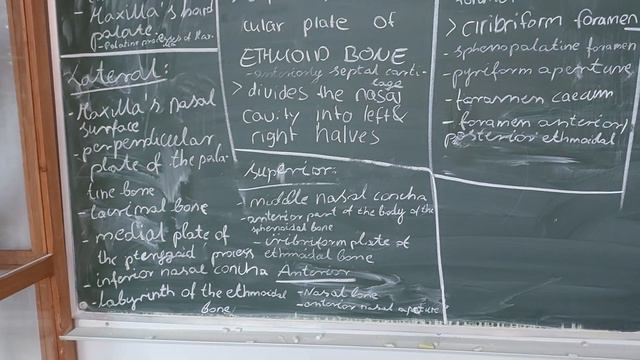 - Maxilla's hard
palate.
- Palatine processes of Max-
illa
Lateral:
- Maxilla's nasal
surface
- perpendicular
plate of the pala-
tine bone
- lacrimal bone
- medial plate of
the pterygoid process
- inferior nasal concha
- labyrinth of the ethmoidal
bone
cular plate of
ETHMOID BONE
- anteriorly septal carti-
lage
> divides the nasal
cavity into left &
right halves
Superior:
- middle nasal concha
- anterior part of the body of the
sphenoidal bone
- cribriform plate of
ethmoidal bone
Anterior
- Nasal bone
- anterior nasal aperture
> Ciribriform foramen
- sphenopalatine foramen
- pyriform aperture
- foramen caecum
- foramen anterior/
posterior ethmoidal